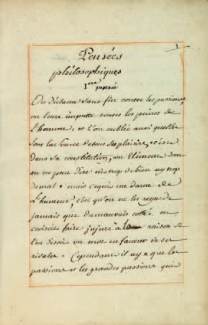 1
Pensées
philosophiques
1ere pensée
On déclame sans fin contre les passions;
on leur impute toutes les peines de
l'homme, et l'on oublie aussi qu'elles
sont les sources de tous ses plaisirs, c'est
dans sa constitution, un élément dont
on ne peut dire ni trop de bien ni trop
de mal. mais ce qui me donne de
l'humeur, c'est qu'on ne les regarde
jamais que du mauvais coté. on
croiroit faire injure à la raison si
l'on disoit un mot en faveur de ses
rivales. Cependant il n'y a que les
passions et les grandes passions qui